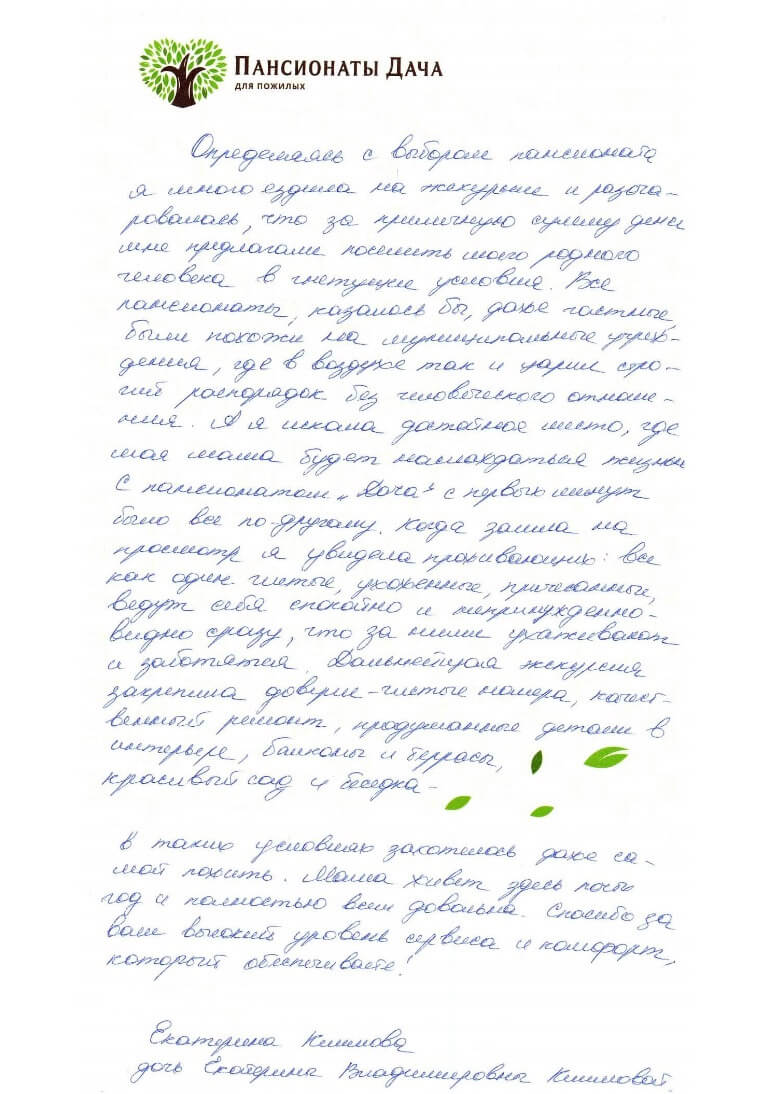 ПАНСИОНАТЫ ДАЧА
ДЛЯ ПОЖИЛЫХ
Определяясь с выбором пансионата
я много ездила на экскурсие и разоча-
ровалась, что за приличную сумму денег
мне предлагали поселить моего родного
человека в гнетущие условия. Все
пансионаты, казалось бы, даже частные,
были похожи на муниципальные учреж-
дения, где в воздухе так и царил стро-
гий распорядок без человеческого отноше-
ния. А я искала достойное место, где
моя мама будет наслаждаться жизнью
С пансионатом „Дача" с первых минут
было все по-другому. Когда зашла на
просмотр я увидела проживающих: все
как один чистые, ухоженные, причесанные,
ведут себя спокойно и непринужденно-
видно сразу, что за ними ухаживают
и заботятся. Дальнейшая экскурсия
закрепила доверие - чистые номера, качест-
венный ремонт, продуманные детали в
интерьере, балконы и террасы,
красивый сад и беседка -
в таких условиях захотелось даже са-
мой пожить. Мама живет здесь почти
год и полностью всем довольна. Спасибо за
ваш высокий уровень сервиса и комфорт,
который обеспечиваете!
Екатерина Климова
дочь Екатерины Владимировны Климовой.